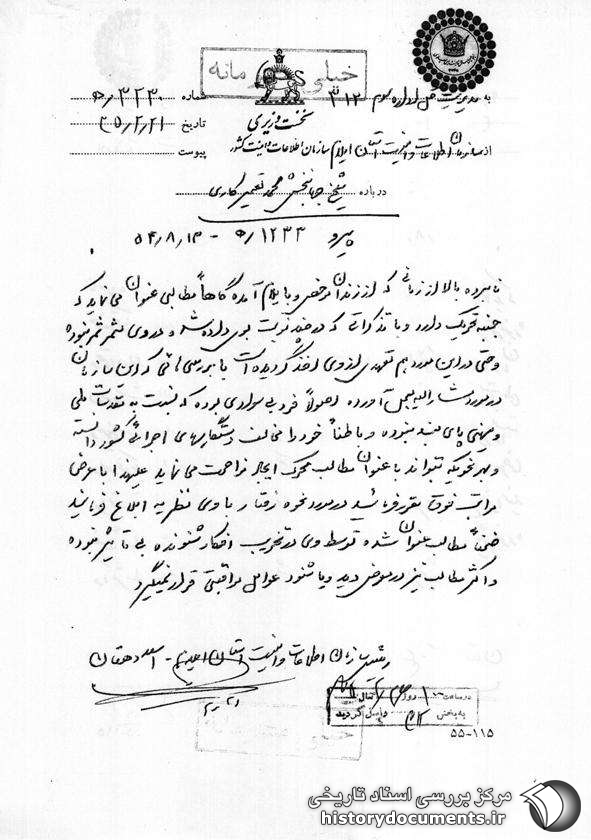 خیلی محرمانه
به مدیریت کل اداره سوم ۳۱۲
شماره ۳۲۳۰/ه
نخست وزیری
تاریخ ۳۵/۲/۲۱
از سازمان اطلاعات و امنیت استان ایلام سازمان اطلاعات و امنیت کشور
پیوست
درباره شیخ جهانبخش محمد تعمیرکاری
پیرو ۱۲۳۳/ه - ۵۴/۸/۱۳
نامبرده بالا از زمانی که از زندان مرخص و بایلام آمده گاهاً مطالبی عنوان می نماید که
جنبه تحریک دارد و با تذکراتی که در چند نوبت بوی داده شد در وی مثمرثمر نبوده
و حتی در این مورد هم تعهدی از وی اخذ گردیده است با بررسی هائی که این سازمان
در مورد مشارالیه بعمل آورده اصولاً فرد بی سوادی بوده که نسبت به مقدسات ملی
و میهنی پای بند نبوده و باطناً خود را مخالف دستگاههای اجرائی کشور دانسته
و بهر نحویکه بتواند با عنوان مطالب محرک ایجاد مزاحمت می نماید علیهذا با عرض
مراتب فوق مقرر فرمائید در مورد نحوه رفتار با وی نظریه ابلاغ فرمائید
ضمناً مطالب عنوان شده توسط وی در تخریب افکار شنونده بی تاثیر نبوده
و اکثر مطالب نیز در معرض دید و یا شنود عوامل مراقبتی قرار نمیگیرد
رئیس سازمان اطلاعات و امنیت استان ایلام - اسعد دهقان
در ساعت روز
به بخش ۳۱۲ واصل گردید
۵۵-۱۱۵
مرکز بررسی اسناد تاریخی
historydocuments.ir